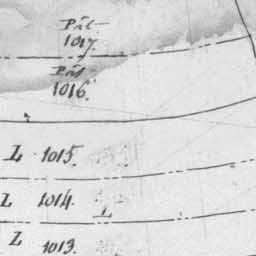 Pâs
1017.
Pâs
1016.
L 1015.
L 1014.
L
L 1013.